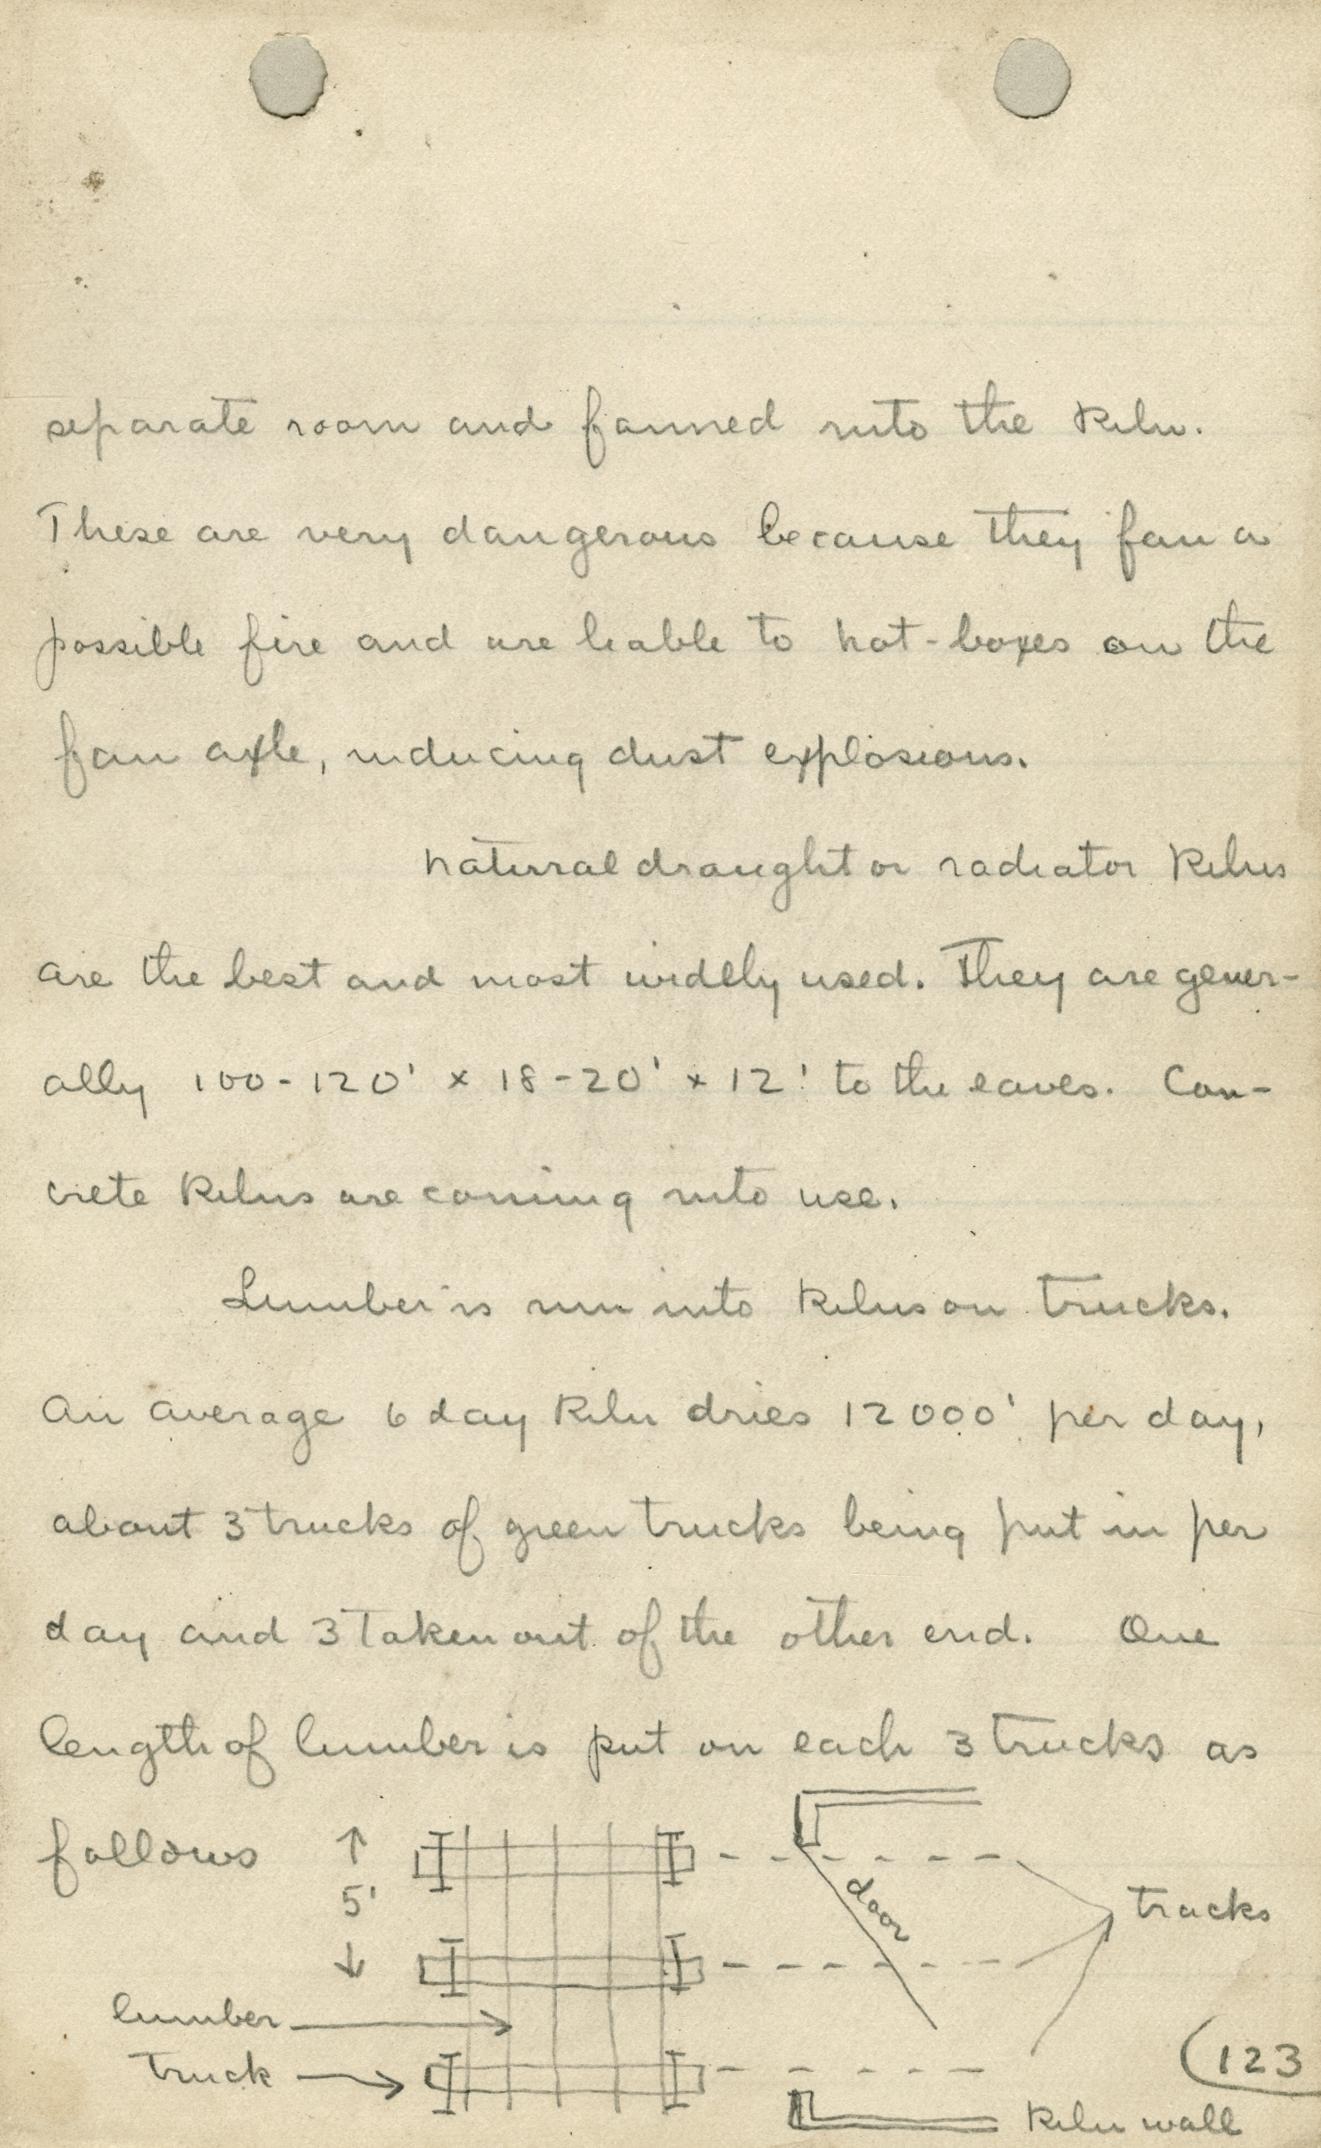 separate room and fanned into the kiln.
These are very dangerous because they fan a
possible fire and are liable to hot-boxes on the
fan axle, inducing dust explosions.
Natural draught or radiator kilns
are the best and most widely used. They are gener-
ally 100-120' x 18-20' x 12' to the eaves. Con-
crete kilns are coming into use.
Lumber is run into kilns on trucks.
An average 6 day kiln dries 12000' per day,
about 3 trucks of green trucks being put in per
day and 3 taken out of the other end. One
length of lumber is put on each 3 trucks as
follows
5'
door
tracks
lumber
truck
(123
kiln wall